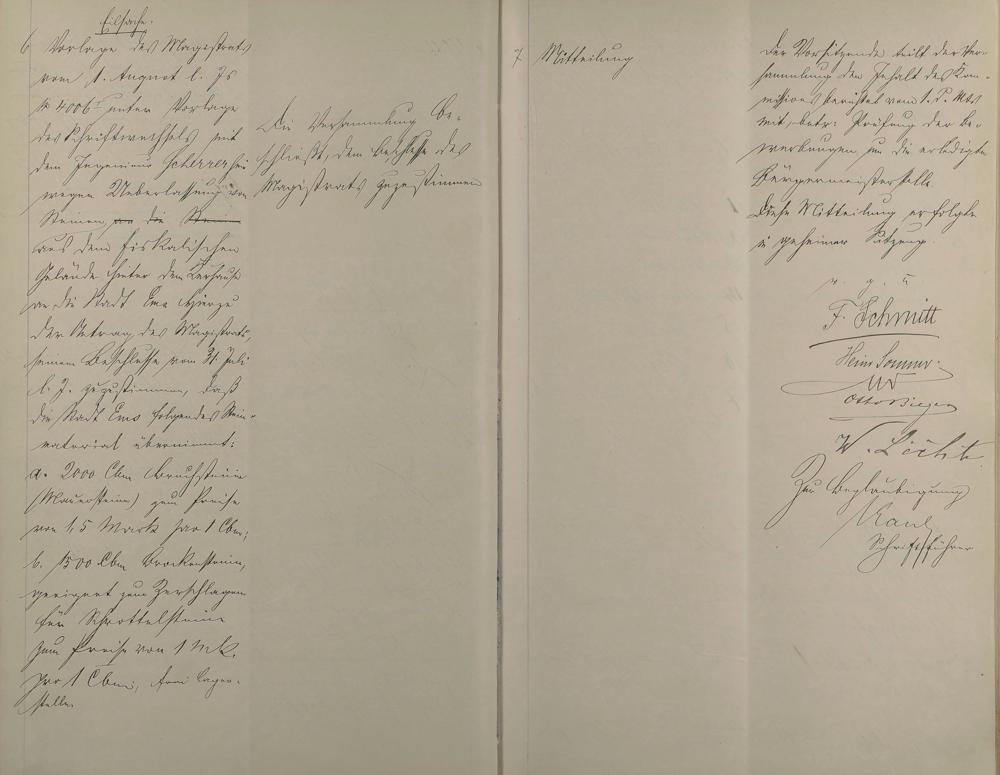 Eilsache.
6 Vorlage des Magistrats
vom 1. August l. Js
№ 4006 unter Vorlage
des Schriftwechsels mit
dem Ingenieur Scherrer hier
wegen Ueberlassung von
Steinen an die Steine
aus dem fiskalischen
Gelände hinter dem Kurhause
an die Stadt Ems hierzu
der Antrag des Magistrats,
seinem Beschlusse vom 31. Juli
l. J. zuzustimmen, daß
die Stadt Ems folgendes Stein-
material übernimmt:
a. 2000 Cbm Bruchsteine
(Mauersteine) zum Preise
von 1,5 Mark pro 1 Cbm;
b. 1500 Cbm Brockensteine,
geeignet zum Zerschlagen
für Schrottelsteine
zum Preise von 1 Mk.
pro 1 Cbm, frei Lager-
stelle.
Die Versammlung be-
schließt, dem Beschlusse des
Magistrats zuzustimmen
7 Mitteilung
Der Vorsitzende teilt der Ver-
sammlung den Inhalt des Kom-
missionsberichtes vom 1. d. Mts
mit, betr: Prüfung der Be-
werbungen um die erledigte
Bürgermeisterstelle.
Diese Mitteilung erfolgte
in geheimer Sitzung.
v. g. u
F. Schmitt
Heinr Sommer
Otto
W. Licht
Zur Beglaubigung
Kaul
Schriftführer